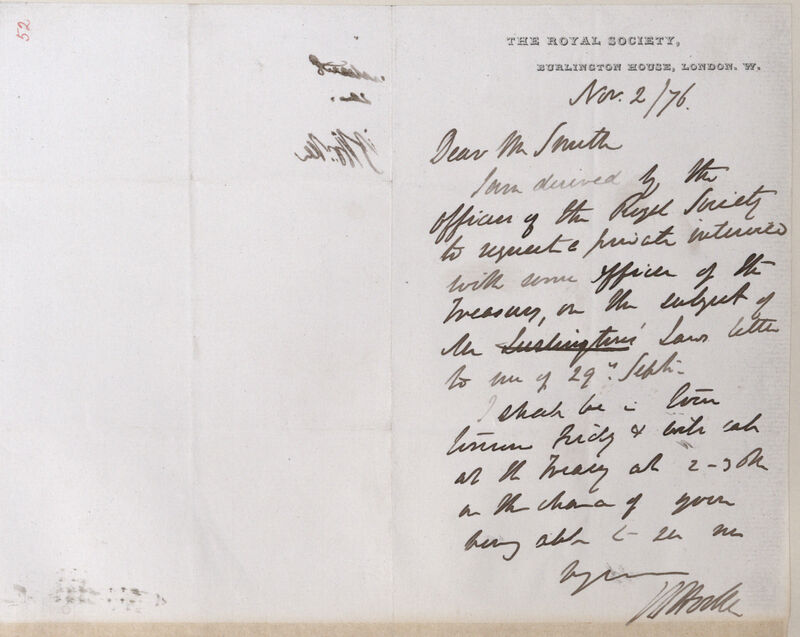 52
THE ROYAL SOCIETY,
BURLINGTON HOUSE, LONDON. W.
Nov. 2/76.
Dear Mr Smith
I am desired by the
officers of the Royal Society
to request a private interview
with some officer of the
Treasury, on the subject of
Mr Lushington's Laws letter
to me of 29th Septr.
I shall be in Town
tomorrow Friday & will call
at the Treasury at 2-30 PM
on the chance of your
being able to see me